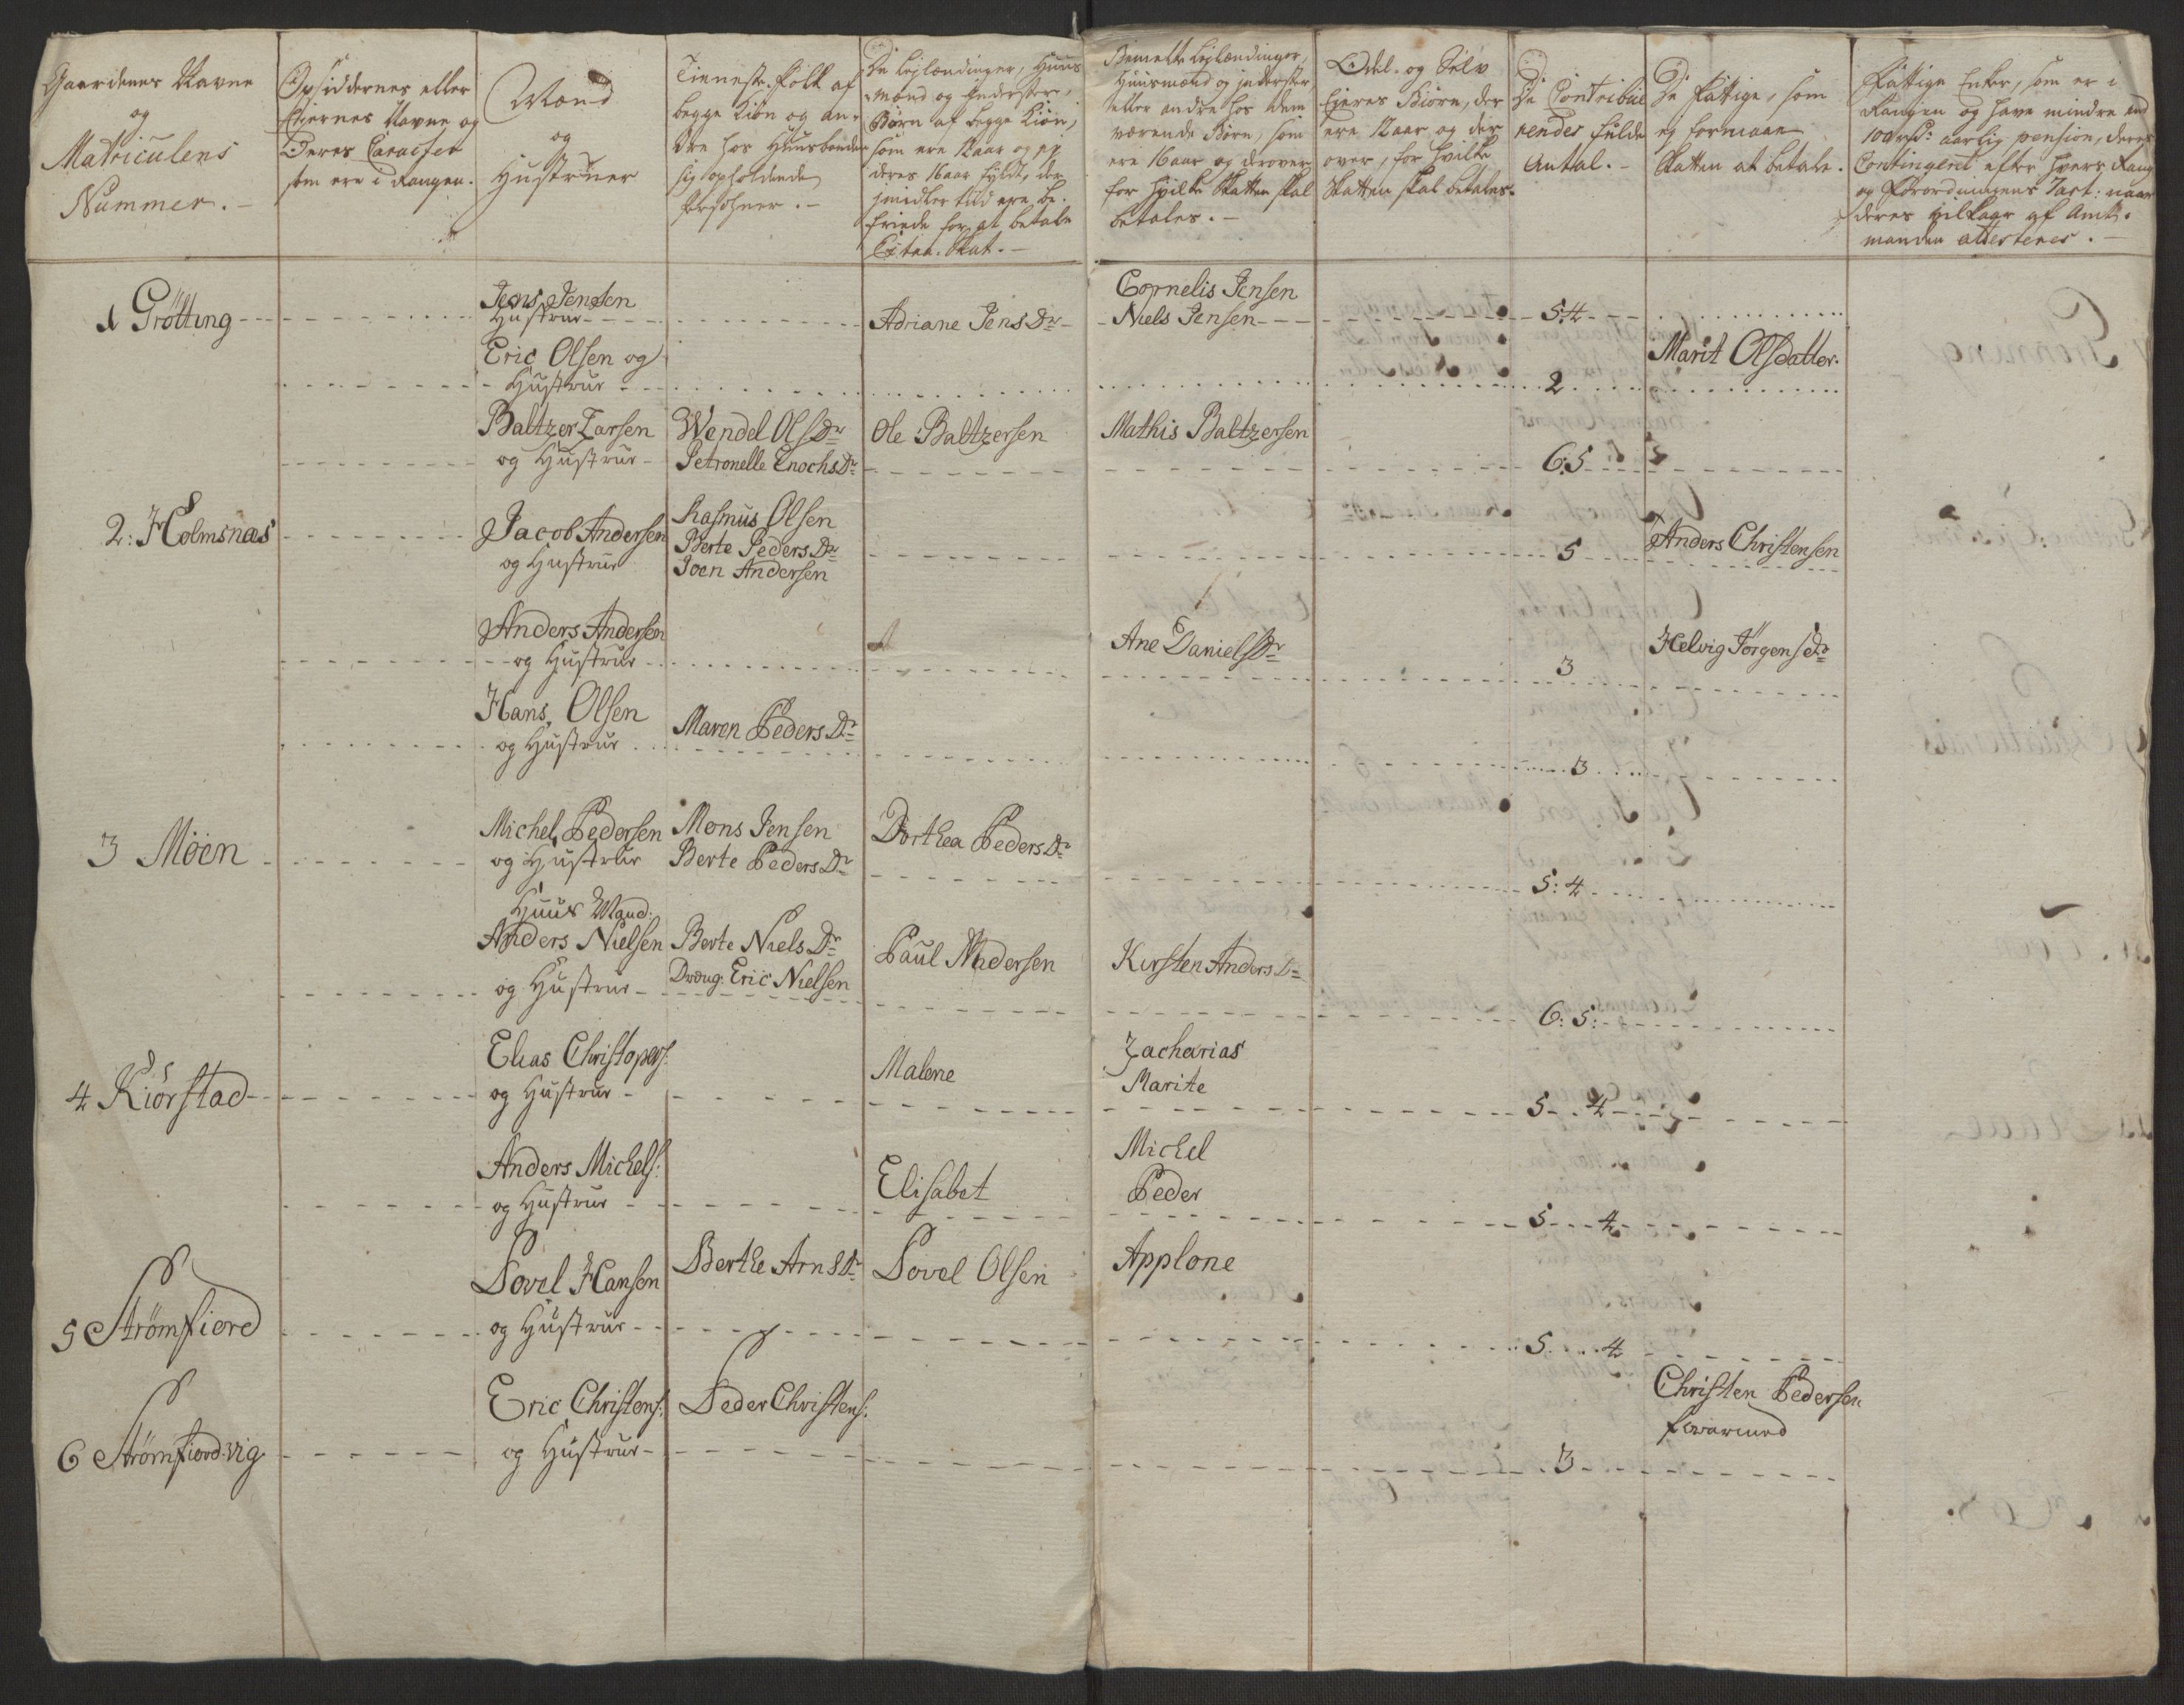 Gaardenes Navne
og
Matriculens
Nummer.
Opsiddernes eller
Eiernes Navne og
Deres Caracter
som ere i Rangen.
Mænd
og
Hustruer
Tieneste-Folk af
begge Kiön og an-
dre hos Huusbonden
sig opholdende
Persohner.
De Leylændinger, Huus
mænd og Inderstere,
Börn af begge Kiön,
som ere 12 aar og ej
deres 16 aar fyldt, der
imidlertid ere be-
friede for at betale
Extra-Skat.
Bemelte Leylændinger,
Huusmænd og inderster
eller andre hos dem
værende Börn, som
ere 16 aar og derover
for hvilke Skatten skal
betales.
Odel- og Selv
Eieres Biörn, der
ere 12 aar og der
over, for hvilke
Skatten skal betales.
De Contribue
rendes fulde
Antal.
De Fattige, som
ej formaae
Skatten at betale.
Fattige Enker, som er i
Rangen og have mindre end
100 rd: aarlig pension, deres
Contingent efter hvers Rang
og Forordningens 7 art: naar
deres vilkaar af Amt-
manden attesteres.
1 Grötting
Jens Jensen
Hustrue
Adriane Jens Dr
Cornelis Jensen
Niels Jensen
5:4
Eric Olsen og
Hustrue
2
Marit Olsdatter.
Baltzer Larsen
og Hustrue
Wendel Ols Dr
Petronelle Enochs Dr
Ole Baltzersen
Mathis Baltzersen
6:5
2: Holmsnæs
Jacob Andersen
og Hustrue
Rasmus Olsen
Berte Peders Dr
Joen Andersen
5
Anders Christensen
Anders Andersen
og Hustrue
Ane Daniels Dr
3
Helvig Jörgens Dr
Hans Olsen
og Hustrue
Maren Peders Dr
3
3 Möen
Michel Pedersen
og Hustrue
Mons Jensen
Berte Peders Dr
Dorthea Peders Dr
5:4
Huus Mand:
Anders Nielsen
og Hustrue
Berte Niels Dr
Dreng: Eric Nielsen
Paul Andersen
Kirsten Anders Dr
6:5:
4 Kiörstad
Elias Christopers:
og Hustrue
Malene
Zacharias
Marite
5 4
Anders Michels:
og Hustrue
Elisabet
Michel
Peder
5 4
5 Strömfiord
Povel Hansen
og Hustrue
Berthe Arns Dr
Povel Olsen
Applone
5 4
6 Strömfiord:vig
Eric Christens:
og Hustrue
Peder Christens:
3
Christen Pedersen